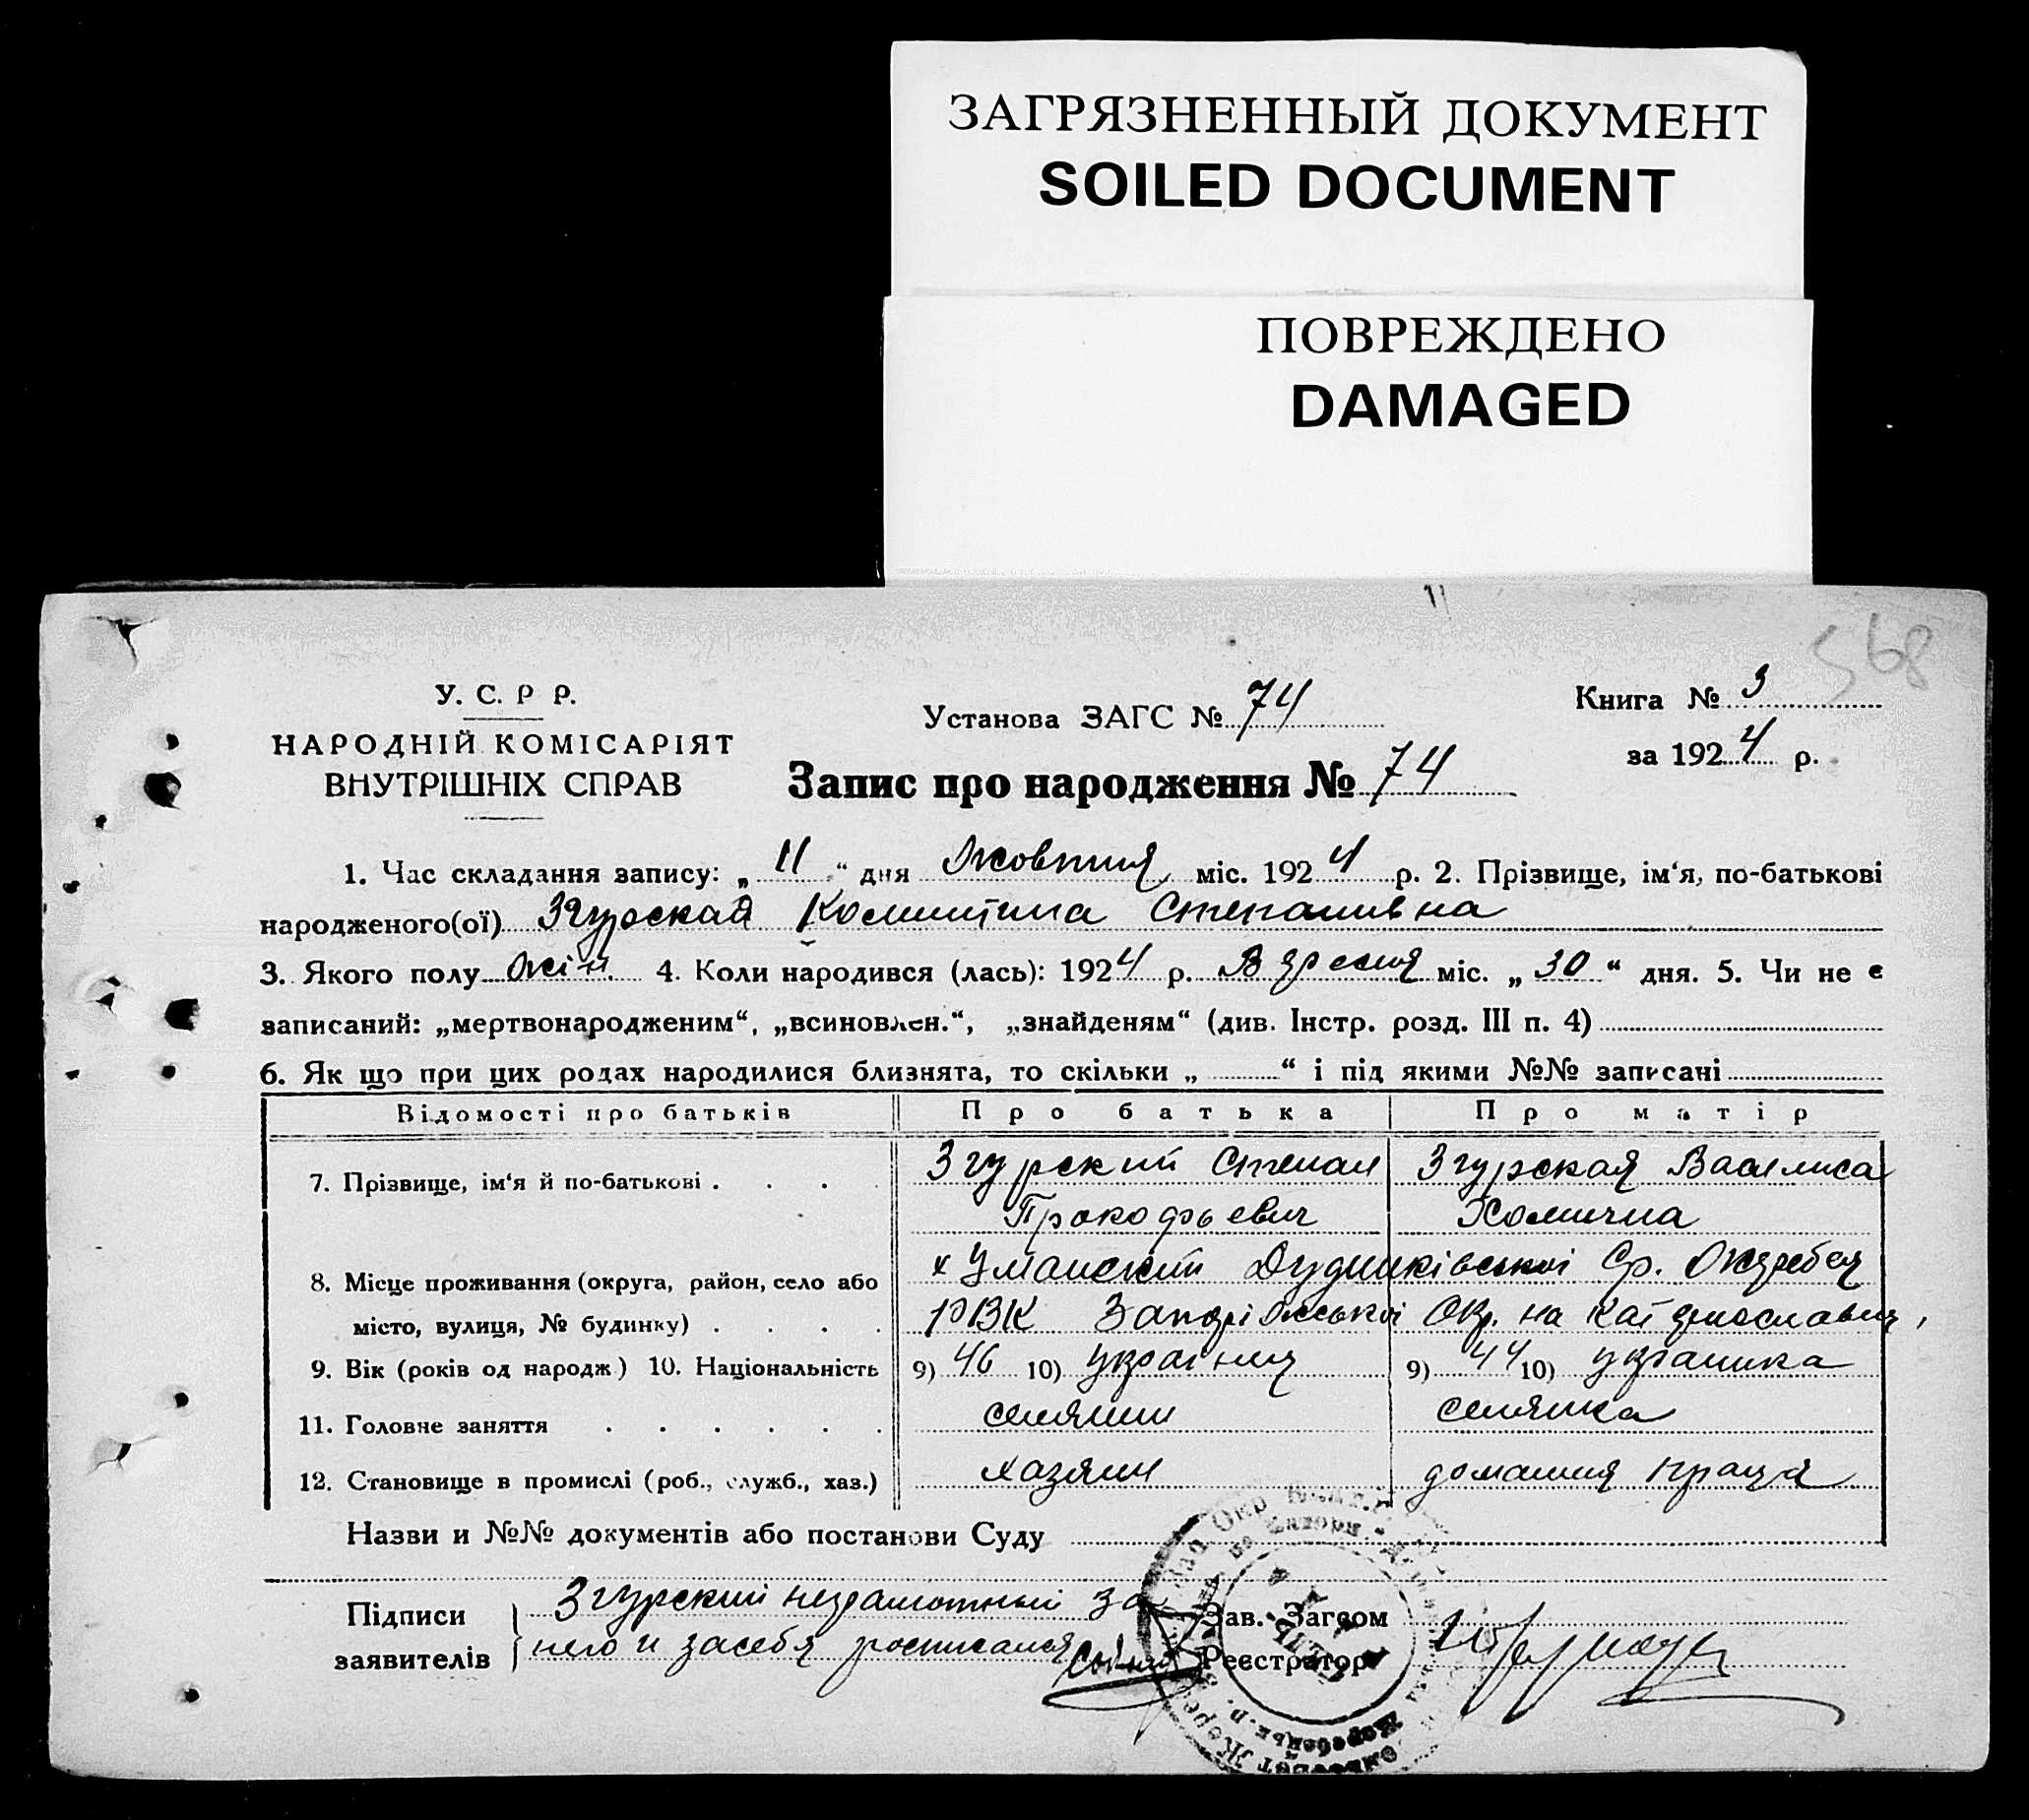 ЗАГРЯЗНЕННЫЙ ДОКУМЕНТ
SOILED DOCUMENT
ПОВРЕЖДЕНО
DAMAGED
568
У. С. Р Р.
НАРОДНІЙ КОМІСАРІЯТ
ВНУТРІШНІХ СПРАВ
Установа ЗАГС № 74
Запис про народження № 74
Книга № 3
за 1924 р.
1. Час складання запису: „ 11 “ дня Жовтня міс. 1924 р. 2. Прізвище, ім‘я, по-батькові
народженого(ої) Згурская Степанивна
3. Якого полу жін. 4. Коли народився (лась): 1924 р. Вересня міс. „ 30 “ дня. 5. Чи не є
записаний: „мертвонародженим“, „всиновлен.“, „знайденям“ (див. Інстр. розд. III п. 4)
6. Як що при цих родах народилися близнята, то скільки „ “ і під якими №№ записані
Відомості про батьків Про батька Про матір
7. Прізвище, ім‘я й по-батькові . . . . Згурский Степан Згурская Василиса
Прокофьевич Хомична
8. Місце проживання (округа, район, село або х Уманский Ср. Жеребец
місто, вулиця, № будинку) . . . . РВК Запоріжської Окр. на Катеринославщ,
9. Вік (років од народж.) 10. Національність 9) 46 10) українец 9) 44 10) украинка
11. Головне заняття . . . . . . селянин селянка
12. Становище в промислі (роб., служб., хаз.) хазяин домашня праця
Назви и №№ документів або постанови Суду
Підписи Згурский неграмотный за Зав. Загсом
заявителів него и за себя росписался Реєстратор